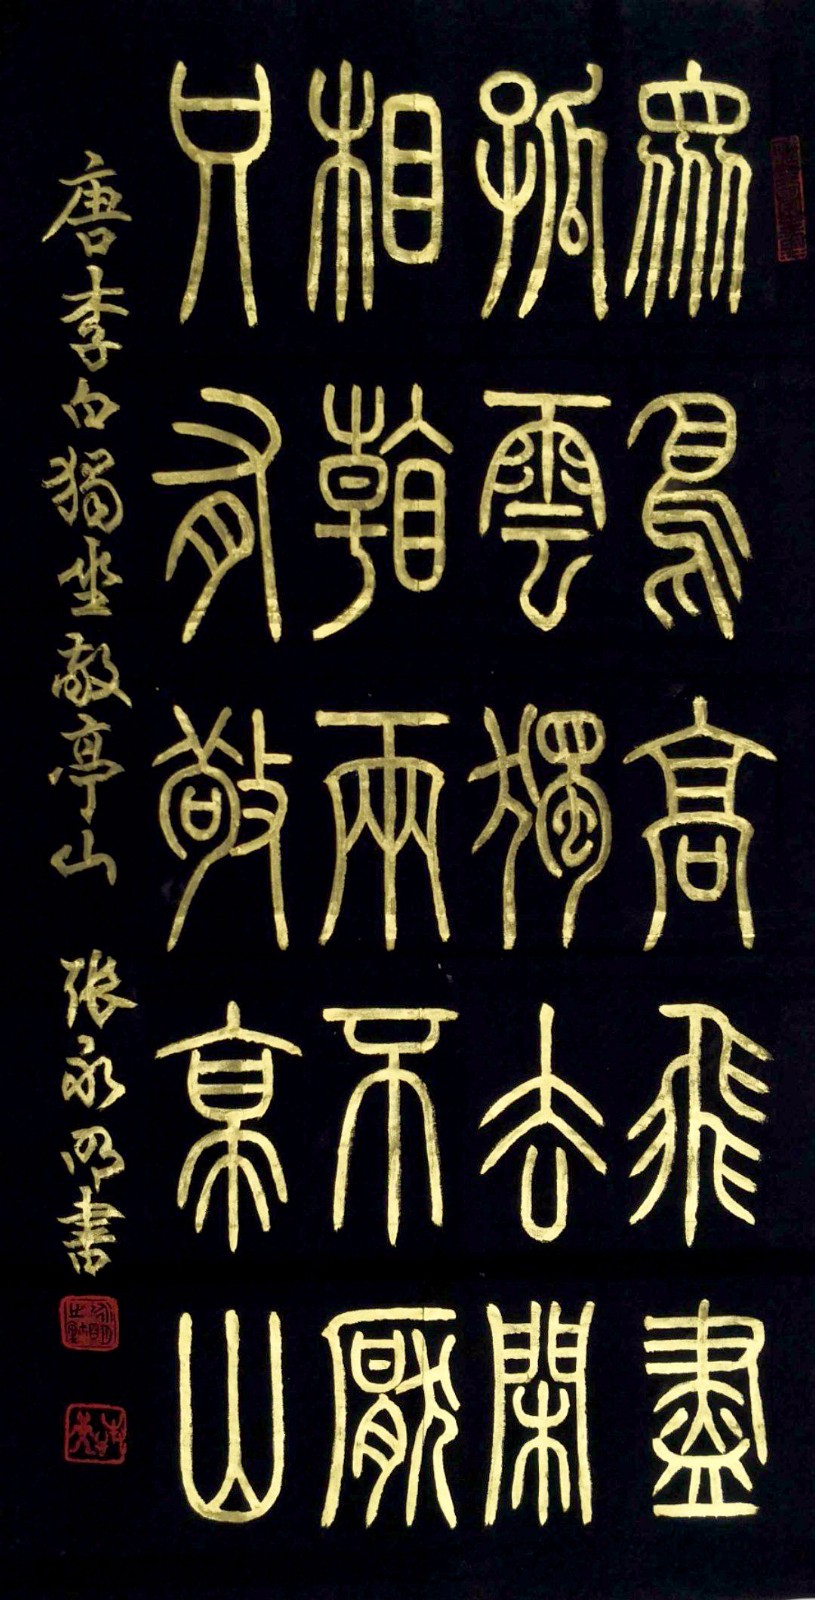 眾鳥高飛盡
孤雲獨去閑
相看兩不厭
只有敬亭山
唐李白獨坐敬亭山 張永明書